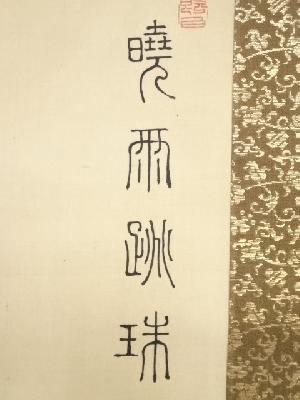 曉雨跳珠